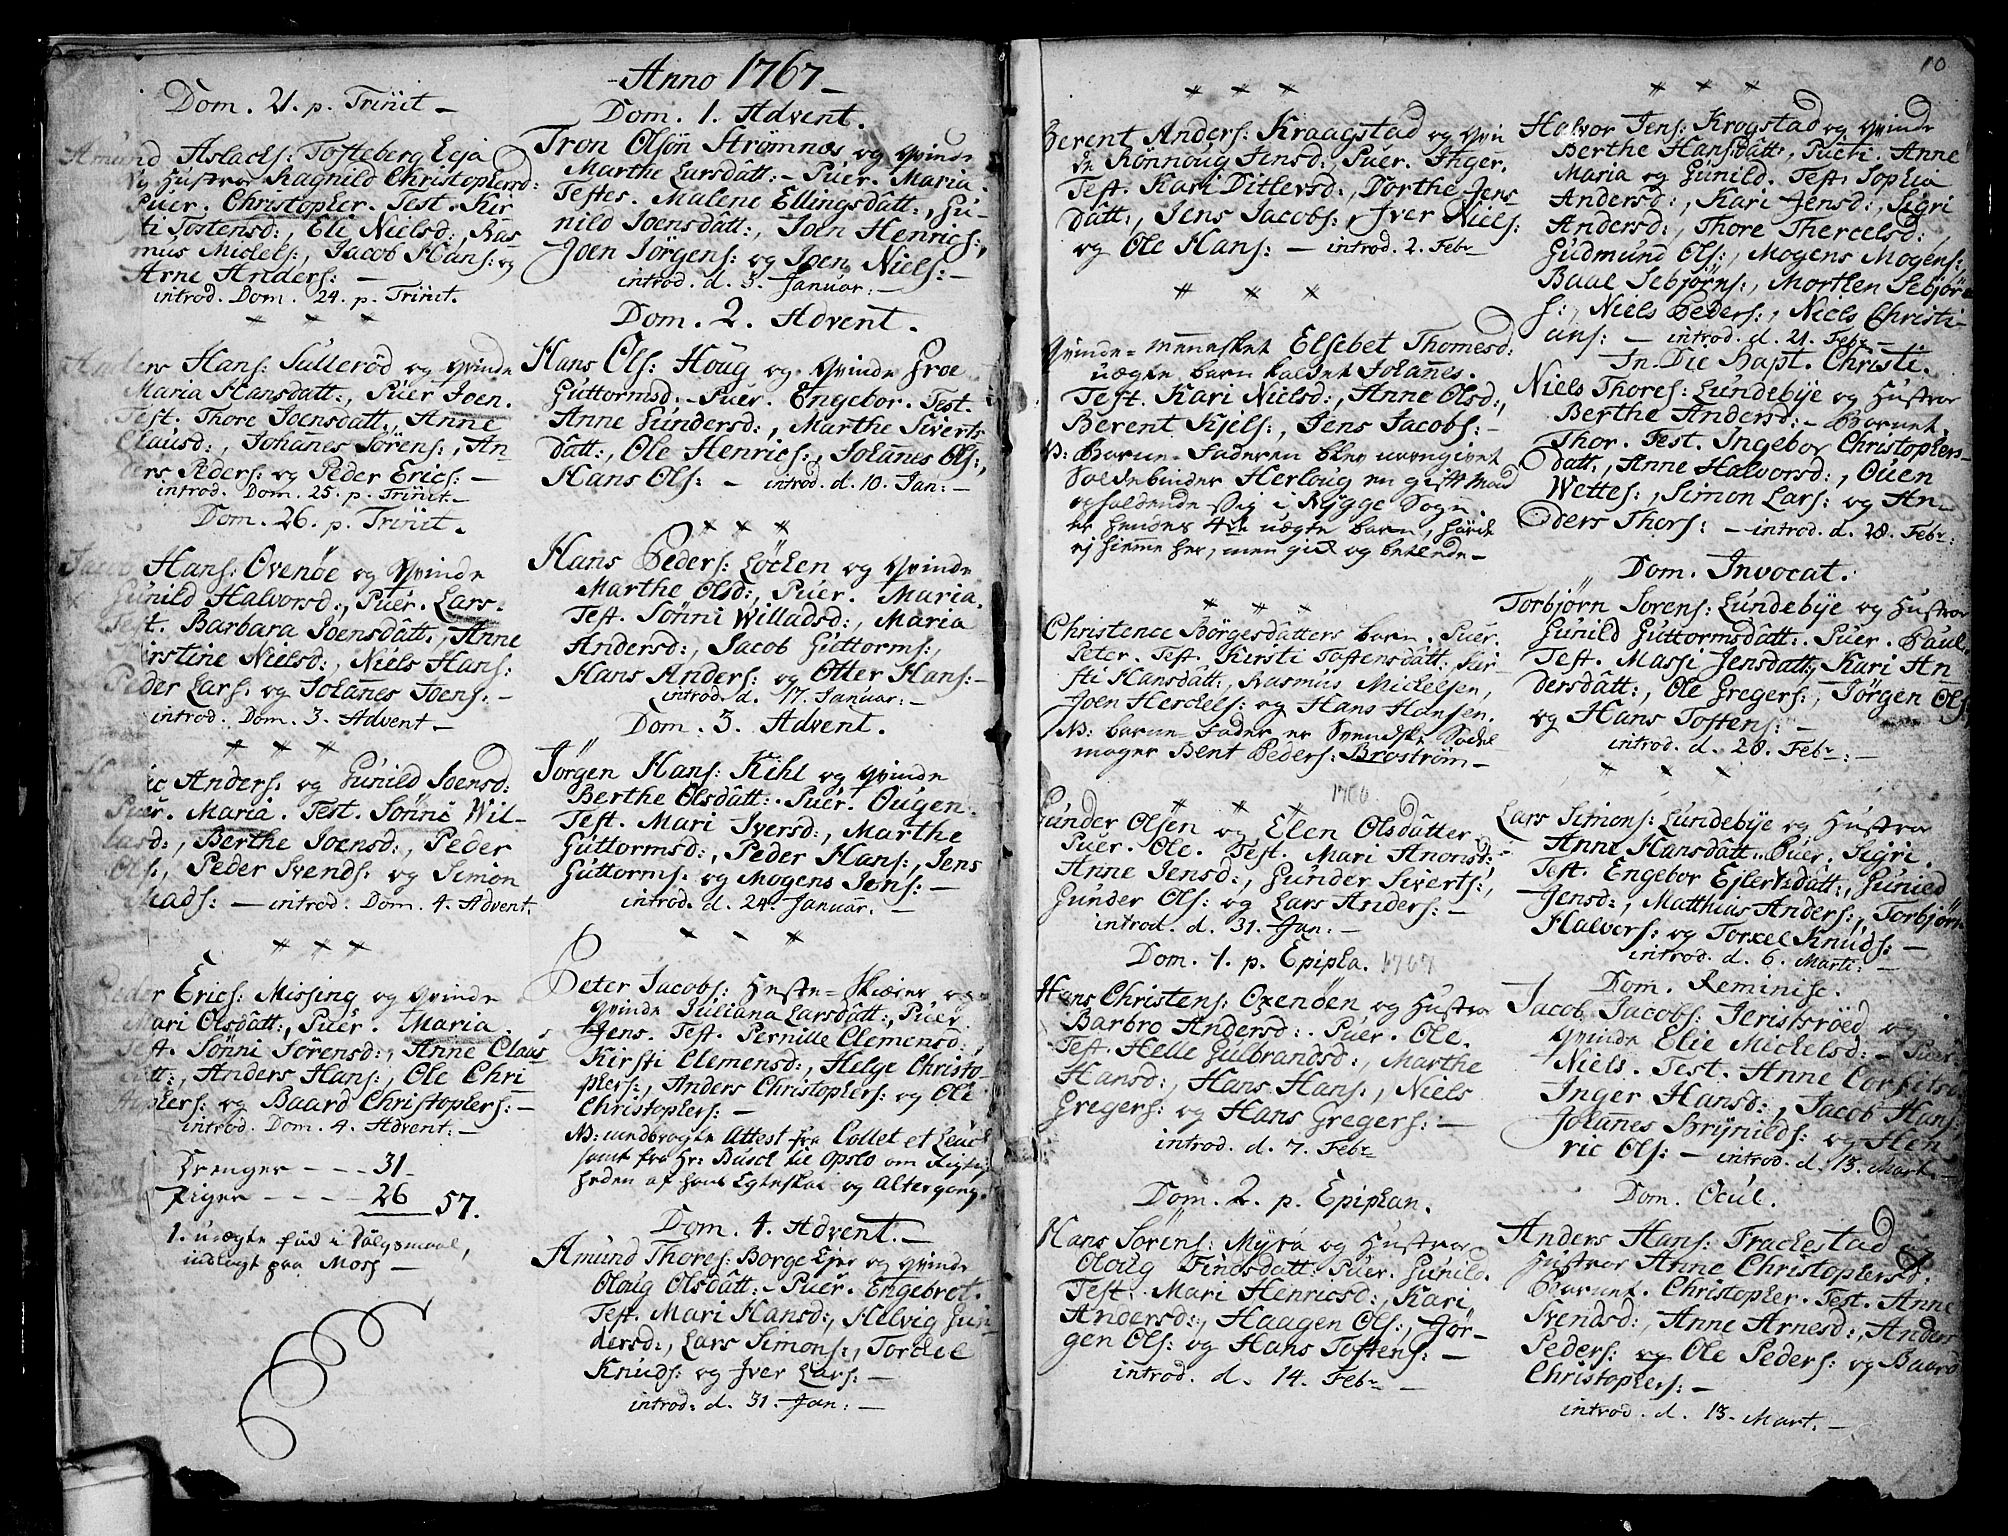 Dom. 21. p. Trinit –
Amund Aslachs: Tosteberg Eeja
og Hustrue Ragnild Christophersd:
Puer. Christopher. Test. Kir
sti Tostensd:, Eli Nielsd:, Ras
mus Mickels:, Jacob Hans: og
Arne Anders: –
introd. Dom. 24. p. Trinit.
* * *
Anders Hans: Sullerød og Qvinde
Maria Hansdatt:, Puer Joen.
Test. Thore Joensdatt:, Anne
Clausd:, Johanes Sörens:, An
ders Peders: og Peder Erics: –
introd. Dom. 25. p. Trinit. –
Dom. 26. p. Trinit.
Jacob Hans: Oxenöe og Qvinde
Gunild Halvorsd:, Puer. Lars.
Test. Barbara Joensdatt:, Anne
Kirstine Nielsd:, Niels Hans:
Peder Lars: og Johanes Joens. –
introd. Dom. 3. Advent –
* * *
Anders: og Gunild Joensd:
Puer. Maria. Test. Sönni Wil-
lasd:, Berthe Joensd:, Peder
Ols:, Peder Svends: og Simon
Mads: – introd. Dom. 4. Advent.
* * *
Peder Erics: Missing og Qvinde
Mari Olsdatt:, Puer. Maria.
Test. Sönni Sörensd:, Anne Claus
datt:, Anders Hans:, Ole Chri
stophers: og Baard Christophers: –
introd. Dom. 4. Advent: –
Drenger – – – 31
Piger – – – – 26 57.
1. uægte fød i Dölgsmaal,
udlagt pra Moss –
Anno 1767 –
Dom. 1. Advent.
Tron Olsön Strömnæs og Qvinde
Marthe Larsdatt: – Puer. Maria.
Testes. Malene Ellingsdatt:, Gu-
nild Joensdatt:, Joen Henrics:,
Joen Jörgens: og Joen Niels: –
introd. d. 3. Januar: –
Dom. 2. Advent.
Hans Ols: Houg og Qvinde Groe
Guttormsd. – Puer. Engebor. Test.
Anne Gundersd:, Marthe Siverts
datt:, Ole Henrics:, Johanes Ols:,
Hans Ols: – introd. d. 10. Jan: –
* * *
Hans Peders: Löcken og Qvinde
Marthe Olsd:, Puer. Maria.
Test. Sönni Willadsd:, Maria
Andersd:, Jacob Guttorms:,
Hans Anders: og Otter Hans: –
introd. d. 17. Januar: –
Dom. 3. Advent.
Jörgen Hans: Kihl og Qvinde
Berthe Olsdatt: . Puer. Ougen.
Test. Mari Iversd:, Marthe
Guttormsd:, Peder Hans:, Jens
Guttorms: og Mogens Jens: –
introd. d. 24. Januar. –
* * *
Peter Jacobs: Heste-Skiærer og
Qvinde Juliana Larsdatt:, Puer
Jens. Test. Pernille Clemensd:,
Kirsti Clemensd:, Helge Christo-
phers:, Anders Christophers: og Ole
Christophers: –
NB: medbragte Attest fra Collet et Leuch
samt fra Hr: Busch til Opslo om Rigtig
heden af hans Egteskab og Altergang.
Dom. 4. Advent. –
Amund Thores: Borge Ejer og Qvinde
Oloug Olsdatt: – Puer. Engebret.
Test. Mari Hansd:, Helvig Gun
dersd:, Lars Simons:, Torckel
Knuds: og Iver Lars: –
introd: d. 31. Jan: –
10
* * *
Berent Anders: Kraagstad og Qvin
de Rönnoug Jensd: Puer. Inger.
Test. Kari Ditlevsd:, Dorthe Jens
datt:, Jens Jacobs:, Iver Niels:
og Ole Hans: – introd. 2. Febr
* * *
Qvinde-mennesket Elsebet Thomesd:
uægte barn kaldet Johanes.
Test. Kari Nielsd:, Anne Olsd:,
Berent Kjels:, Jens Jacobs: –
NB: Barne-Faderen blev angivet
Herloug en gift Mand
opholdende sig i Rygge Sogn.
er hendes 4de uægte barn, hörde
ej hiemme her, men gik og betlede –
* * *
Christence Börgesdatters barn. Puer.
Peter. Test. Kirsti Tostensdatt:, Kir
sti Hansdatt:, Rasmus Mickelsen,
Joen Heschels: og Hans Hansen.
NB: barne-Fader er Svendske Sadel
mager Bent Peders: Broström –
* * * 1766
Gunder Olsen og Elen Olsdatter
Puer. Ole. Test. Mari Anonsd: –
Anne Jensd:, Gunder Siverts:,
Gunder Ols: og Lars Anders: –
introd. d. 31. Jan: –
Dom. 1. p. Epipha. 1767
Hans Christens: Oxenöen og Hustroe
Barbro Andersd: . Puer. Ole.
Test. Helle Gulbrandsd:, Marthe
Hansd:, Hans Hans:, Niels
Gregers: og Hans Gregers: –
introd. d. 7. Febr
Dom. 2. p. Epiphan.
Hans Sörens: Myra og Hustroe
Oloug Findsdatt: Puer. Gunild.
Test. Mari Henricsd:, Kari
Andersd:, Haagen Ols:, Jör-
gen Ols: og Hans Tostens: –
introd. d. 14. Febr –
* * *
Halvor Jens: Krogstad og Qvinde
Berthe Hansdatt:, Pueri. Anne
Maria og Gunild. Test. Sophia
Andersd:, Kari Jensd:, Sigri
Andersd:, Thore Thercelsd:,
Gudmund Ols:, Mogens Mogens:,
Baal Sebjörns:, Morthen Sebjörn
s:, Niels Peders:, Niels Christi-
ans: – introd. d. 21. Febr –
In Die Bapt. Christi.
Niels Thores: Lundebye og Hustroe
Berthe Andersd: – Barnet.
Thor. Test. Ingebor Christophers-
datt:, Anne Halvorsd:, Ouen
Wettes:, Simon Lars: og An-
ders Thors: – introd. d. 28. Febr:
Dom. Invocat.
Torbjörn Sorens: Lundebye og Hustroe
Gunild Guttormsdatt: . Puer. Paul.
Test. Massi Jensdatt:, Kari An
dersdatt:, Ole Gregers:, Jörgen Ols:
og Hans Tostens: –
introd. d. 28. Febr: –
* * *
Lars Simons: Lundebye og Hustroe
Anne Hansdatt. Puer. Sigri.
Test. Engebor Ejlertsdatt:, Gunild
Jensd:, Matthias Anders:, Torbjörn
Halvors: og Torkel Knuds: –
introd. d. 6. Marti: –
Dom. Reminisc.
Jacob Jacobs: Jeristsröed og
Qvinde Elie Mickelsd: – Puer.
Niels. Test. Anne Corfitsd:
Inger Hansd:, Jacob Hans:
Johanes Brynilds: og Hen-
ric Ols: – introd. d. 13. Mart. –
Dom. Ocul.
Anders Hans: Frackestad og
Hustroe Anne Christophersd:
Barnet. Christopher. Test. Anne
Svendsd:, Anne Arnesd:, Anders
Peders: og Ole Peders: og Baard
Christophers: –
introd. d. 13. Mart. –